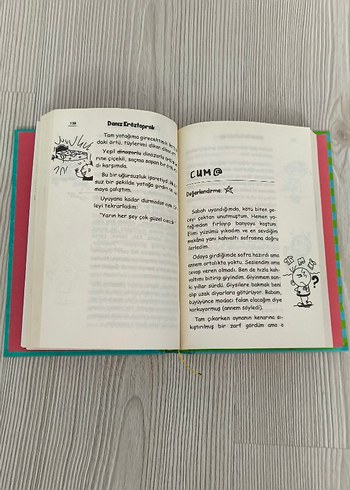 138
Deniz Erözlaprak
Tam yatağıma girecektim
daki örtü, tüylerimi diken diken
Yeşil dinozorlu
rine çiçekli, saçma sapan bir
dı karşımda.
Bu bir uğursuzluk işaretiydi.
suz bir şekilde yatağa girdim
maya çalıştım.
Uyuyana kadar durmadan
leyi tekrarladım:
"Yarın her şey çok güzel
CUM@
Değerlendirme:
Sabah uyandığımda, kötü biten ge-
ceyi çoktan unutmuştum. Hemen ya-
tağımdan fırlayıp banyoya koştum.
Elimi yüzümü yıkadım ve en sevdiğim
mekâna yani kahvaltı sofrasına doğru
ilerledim.
Odaya girdiğimde sofra hazırdı ama
annem ortalıkta yoktu. Seslendim ama
cevap veren olmadı. Ben de hızla kah-
valtımı bitirip giyindim. Giyinmem san-
ki yıllar sürdü. Giysilere bakmak beni
alıp uzak diyarlara götürüyor. Babam,
büyüyünce modacı falan olacağım diye
korkuyormuş (annem söyledi).
Tam çıkarken aynanın kenarına sı-
kıştırılmış bir zarf gördüm ama o